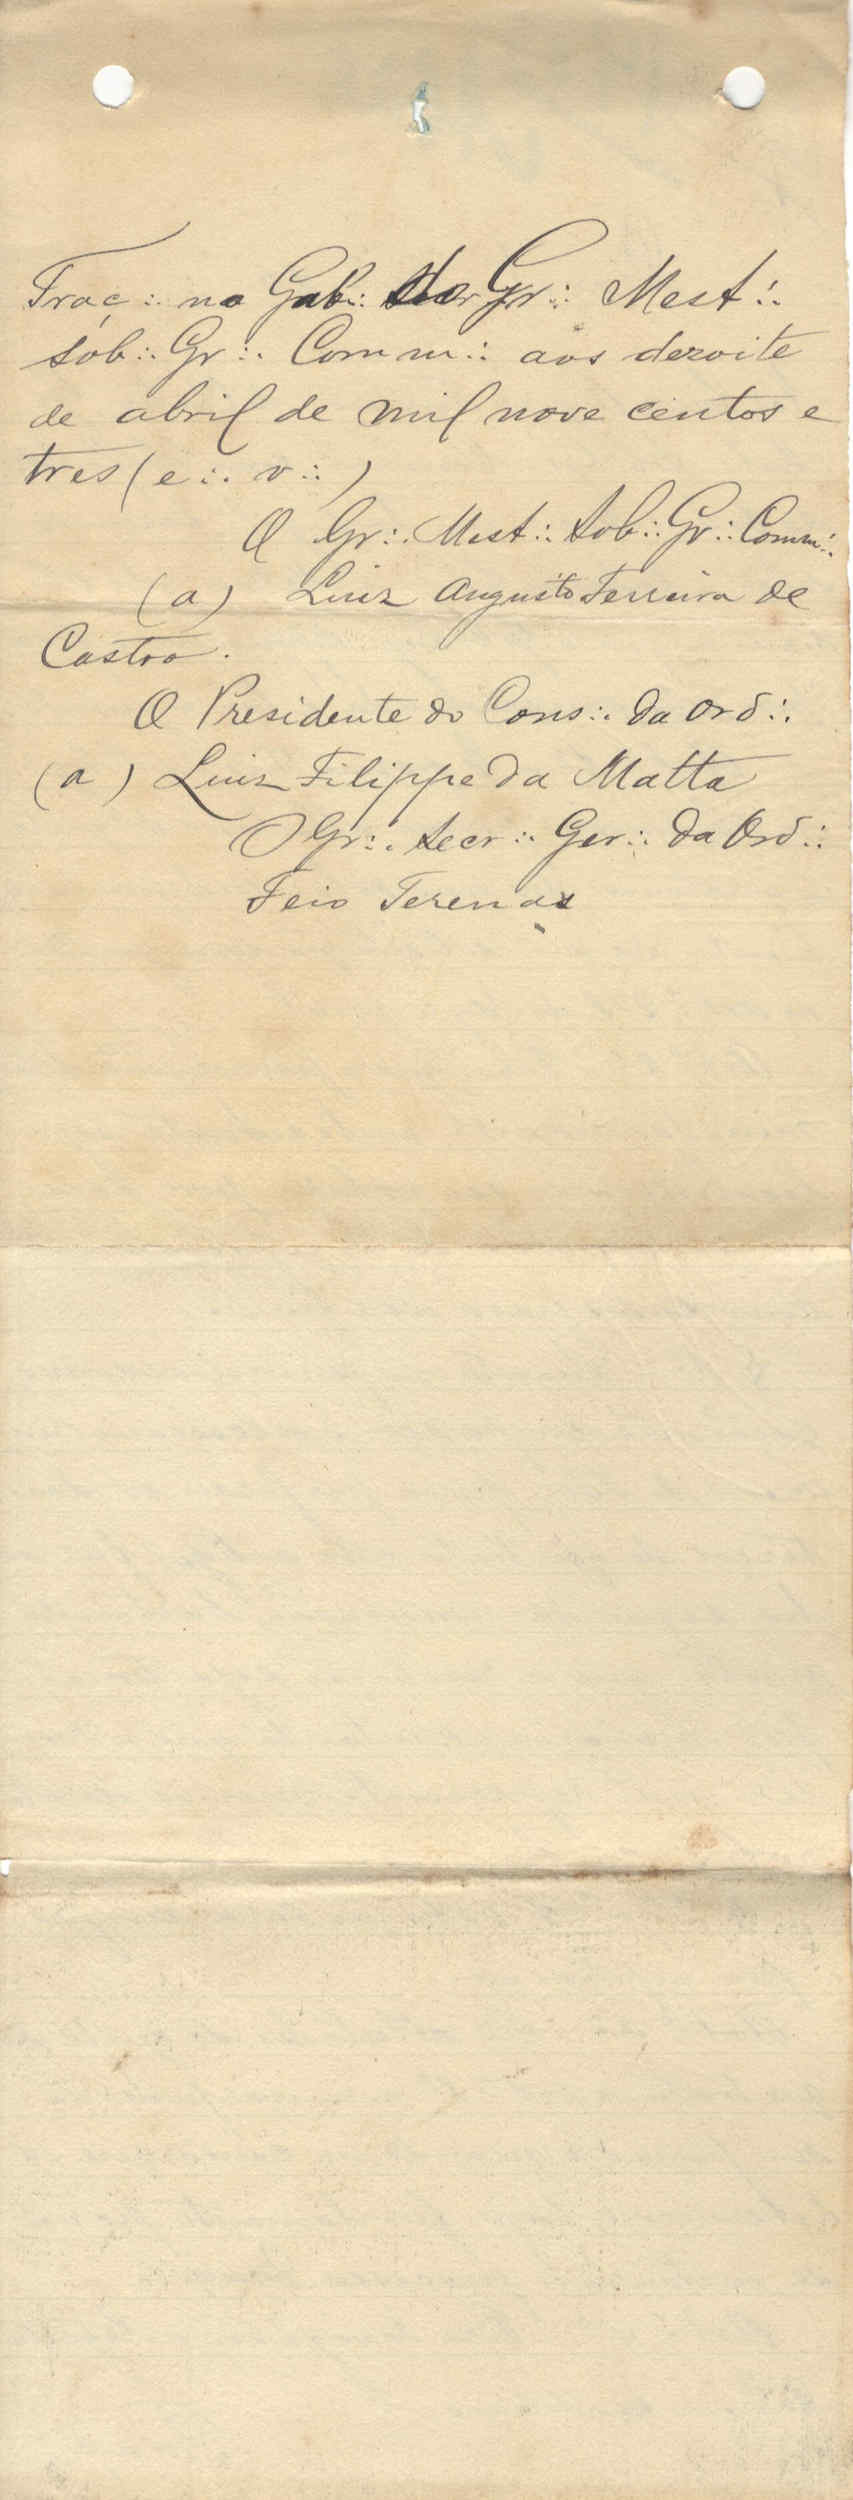 Traç∴ no Gab∴ do Gr∴ Mest∴
Sob∴ Gr∴ Comm∴ aos dezoito
de abril de mil nove centos e
tres (e∴ v∴)
O Gr∴ Mest∴ Sob∴ Gr∴ Comm∴
(a) Luiz Augusto Ferreira de
Castro.
O Presidente do Cons∴ da Ord∴
(a) Luiz Filippe da Matta
O Gr∴ Secr∴ Ger∴ da Ord∴
Feio Terenas